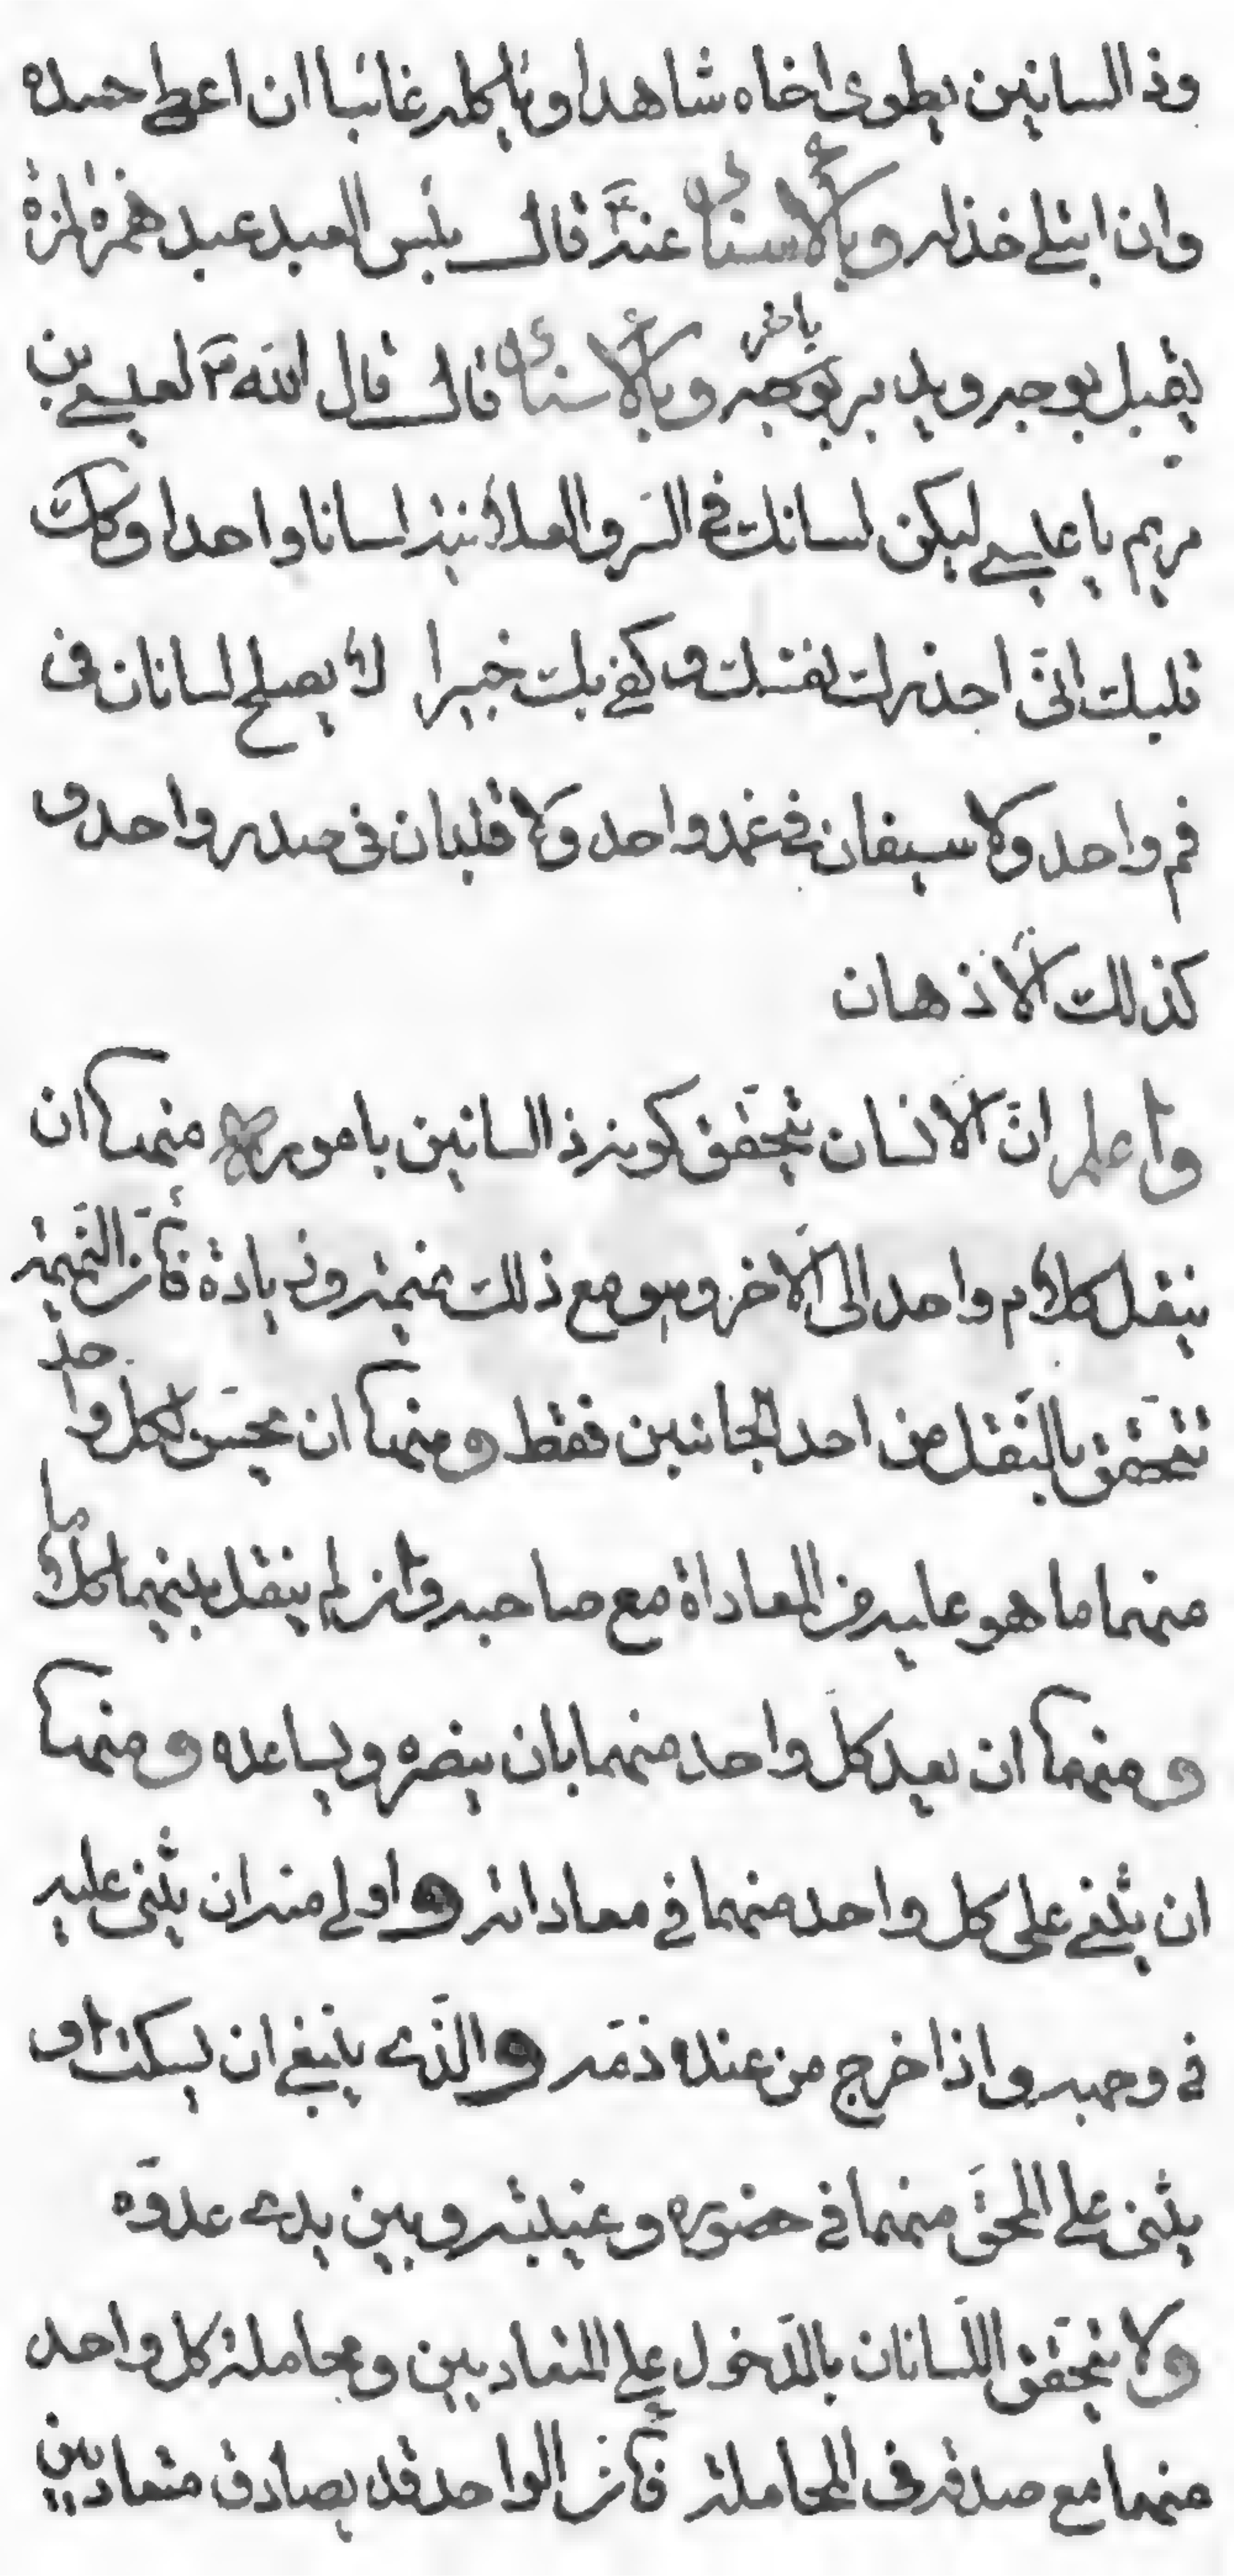 وذا لسانين يطوى اخاه شاهدا وياكله غائبا ان اعطى حسده
وان ابتلى خذله وبالاسناد عنه قال بئس العبد عبد همزة لمزة
يقبل بوجه ويدبر بوجه باخر وبالاسناد قال قال الله تم لعيسى بن
مريم يا عيسى ليكن لسانك فى السر والعلانية لسانا واحدا وكك
قلبك انى احذرك نفسك وكفى بك خبيرا لا يصلح لسانان فى
فم واحد ولا سيفان فى غمد واحد ولا قلبان فى صدر واحد و
كذلك الاذهان
واعلم ان الانسان يتحقق كونه ذا لسانين بامور منها ان
ينقل كلام واحد الى الاخر وهو مع ذلك نميمة وزيادة فان النميمة
تتحقق بالنقل من احد الجانبين فقط ومنها ان يحسن لكل واحد
منهما ما هو عليه من المعاداة مع صاحبه وان لم ينقل بينهما كلاما
ومنها ان يعد كل واحد منهما بان ينصره ويساعده ومنها
ان يثنى على كل واحد منهما فى معاداته واولى منه ان يثنى عليه
فى وجهه واذا خرج من عنده ذمه والذى ينبغى ان يسكت او
يثنى على المحق منهما فى حضوره وغيبته وبين يدى عدوه
ولا يتحقق اللسانان بالدخول على المتعاديين ومجاملة كل واحد
منهما مع صدقه فى المجاملة فان الواحد قد يصادق متعاديين